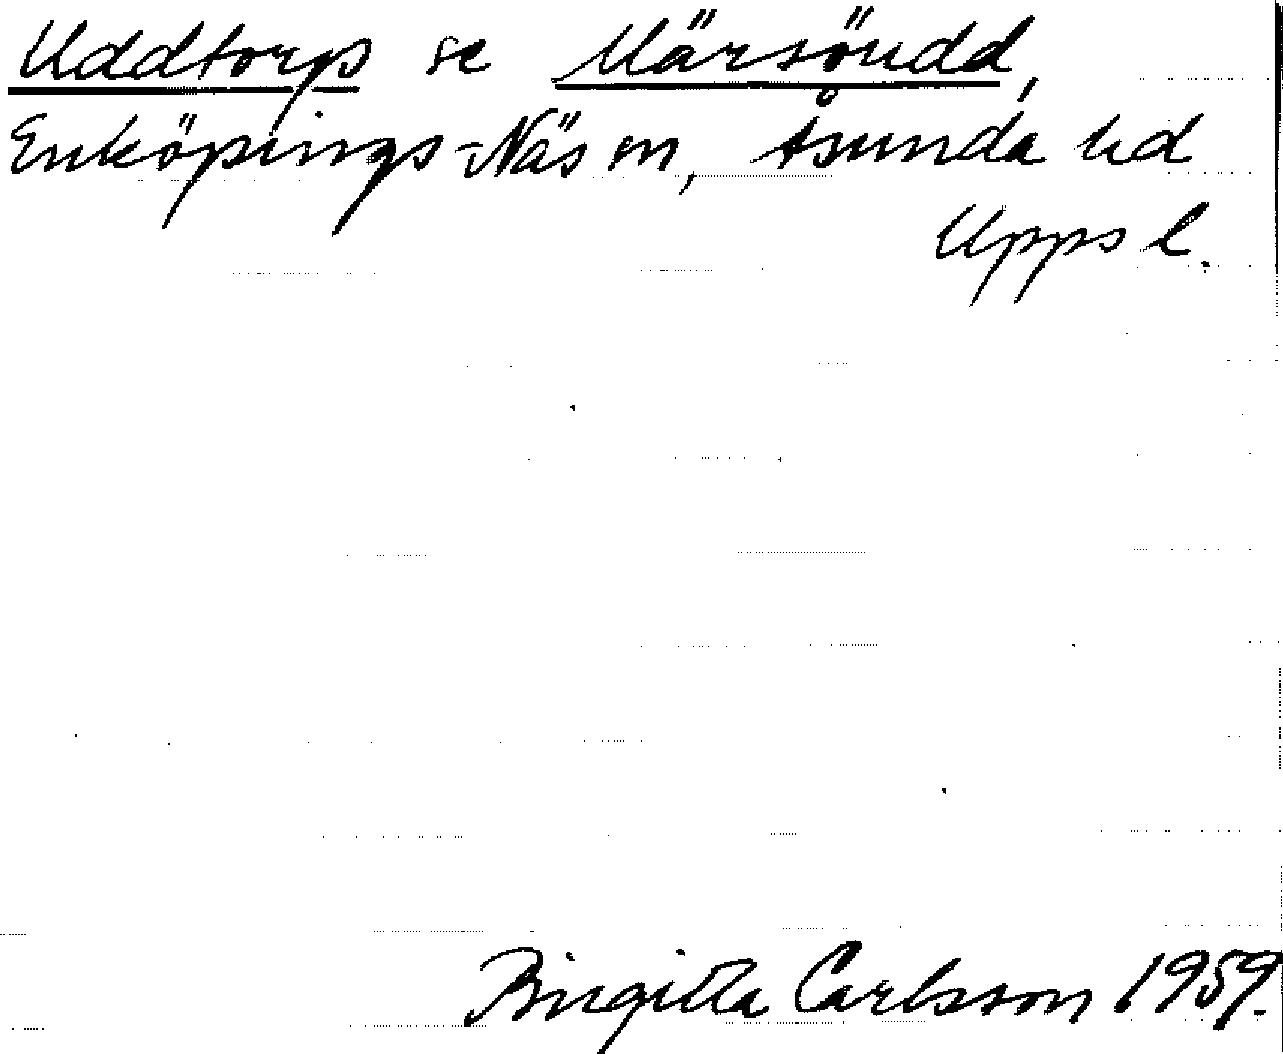 Uddtorp se Märsöudd,
Enköpings-Näs sn, Åsunda hd
Upps l.
Birgitta Carlsson 1959.